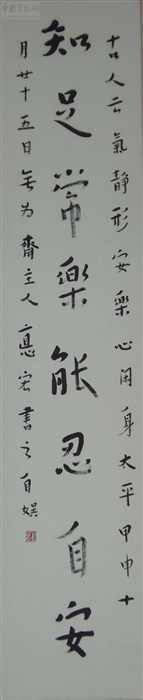 知足常樂能忍自安
古人云氣靜形安樂心閑身太平甲申十
月廿十五日無为齋主人惪宏書之自娱